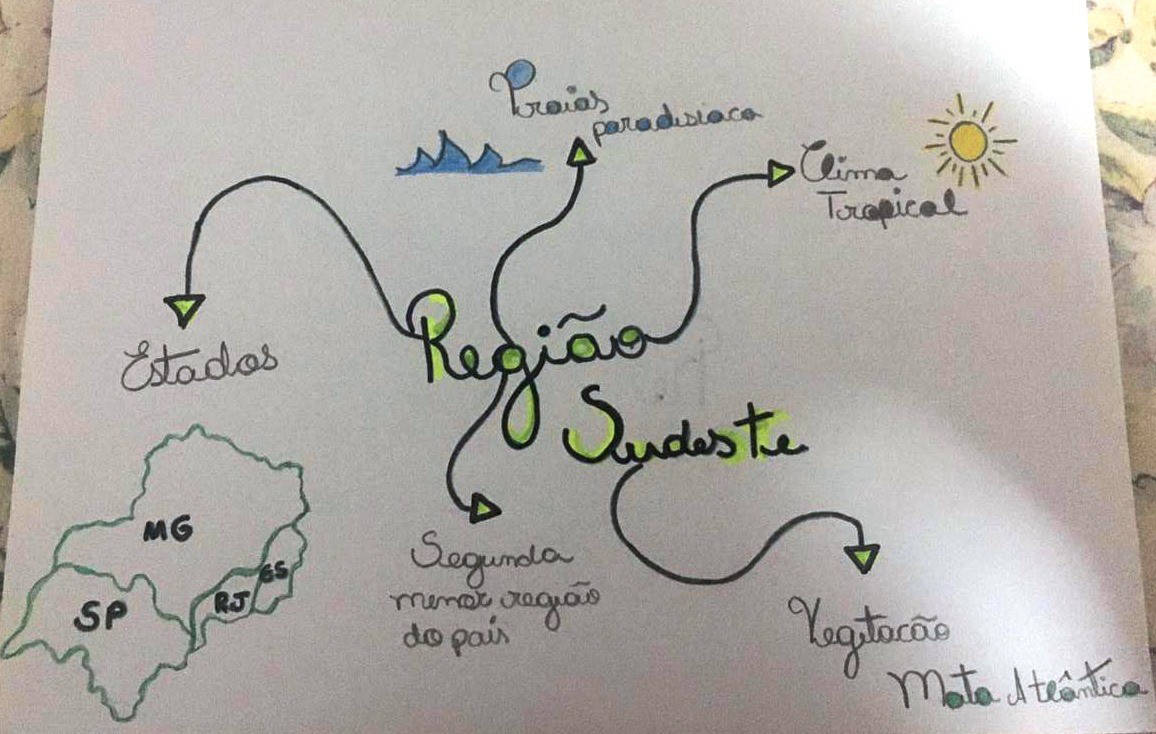 Praias
paradisiaca
Clima
Tropical
Região
Sudeste
Estados
MG
SP
RJ
ES
Segunda
menor região
do país
Vegitacão
Mata Atlântica